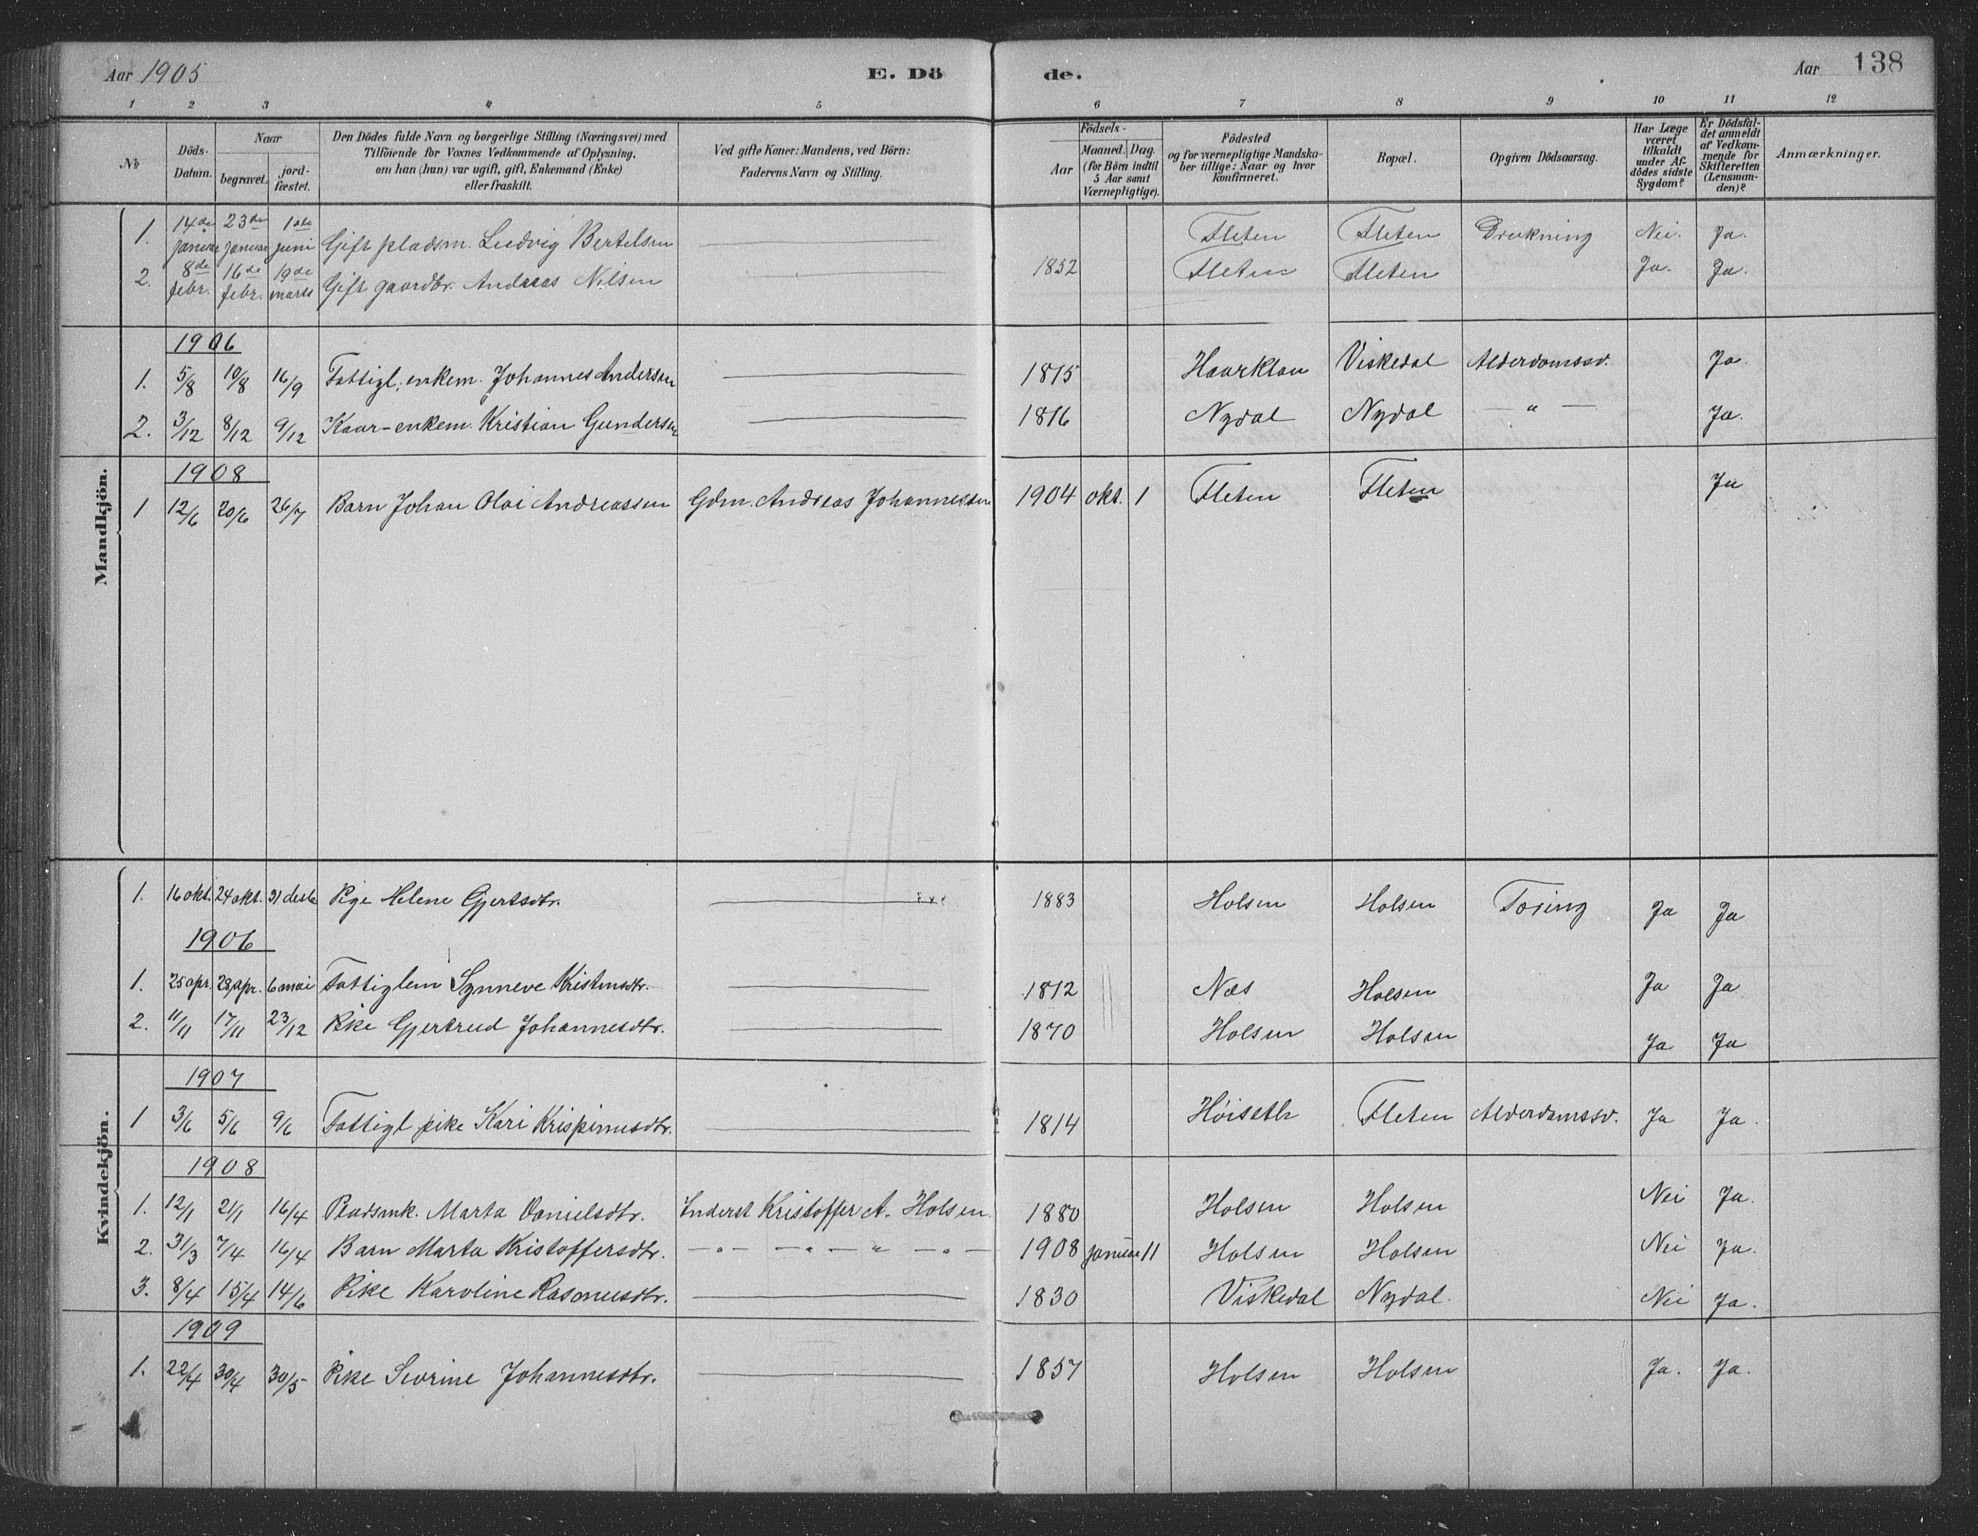 Aar 1905 E. Dö de. Aar 138
1 2 3 4 5 6 7 8 9 10 11 12
No Döds-Datum. Naar begravet. jord-fæstet. Den Dödes fulde Navn og borgerlige Stilling (Næringsvei) med Tilföiende for Voxnes Vedkommende af Oplysning, om han (hun) var ugift, gift, Enkemand (Enke) eller fraskilt. Ved gifte Koner: Mandens, ved Börn: Faderens Navn og Stilling. Födsels- Aar Maaned. Dag. (for Börn indtil 5 Aar samt Værnepligtige). Födested og for værnepligtige Mandskaber tillige: Naar og hvor konfirmeret. Bopæl. Opgiven Dödsaarsag. Har Læge været tilkaldt under Afdödes sidste Sygdom? Er Dödsfaldet anmeldt af Vedkommende for Skifteretten (Lensmanden)? Anmærkninger.
Mandkjön.
1. 14de januar 23de januar 1ste juni Gift pladsm. Ludvig Bertelsen Fleten Fleten Drukning Nei. Ja.
2. 8de febr. 16de febr. 19de marts Gift gaardbr. Andreas Nilsen 1852 Fleten Fleten Ja. Ja.
1906
1. 5/8 10/8 16/9 Fattigl. enkem. Johannes Andersen 1815 Haarklau Viskedal Alderdomssv. Ja.
2. 3/12 8/12 9/12 Kaar-enkem. Kristian Gundersen 1816 Nydal Nydal — " — Ja.
1908
1 12/6 20/6 26/7 Barn Johan Olai Andreassen Gdm. Andreas Johannessen 1904 okt. 1 Fleten Fleten Ja
Kvindekjön.
1. 16 okt. 24 okt. 31 desb Pige Helene Gjertsdtr. 1883 Holsen Holsen Tæring Ja Ja
1906
1. 25 apr. 28 apr. 6 mai Fattiglem Synneve Kristensdtr. 1812 Næs Holsen Ja Ja
2. 11/11 17/11 23/12 Pike Gjertrud Johannesdtr. 1870 Holsen Holsen Ja Ja
1907
1 3/6 5/6 9/6 Fattigl. pike Kari Krispinusdtr. 1814 Høiseth Fleten Alderdamssv. Ja Ja.
1908
1. 12/1 21/1 16/4 Pladsmk. Marta Danielsdtr. Inderst Kristoffer A. Holsen. 1880 Holsen Holsen Nei Ja.
2. 31/3 7/4 16/4 Barn Marta Kristoffersdtr. — " — " — " — " — 1908 januar 11 Holsen Holsen Nei Ja.
3. 8/4 15/4 14/6 Pike Karoline Rasmusdtr. 1830 Viskedal Nydal. Nei Ja.
1909
1. 22/4 30/4 30/5 Pike Sevrine Johannesdtr. 1857 Holsen Holsen Ja. Ja.